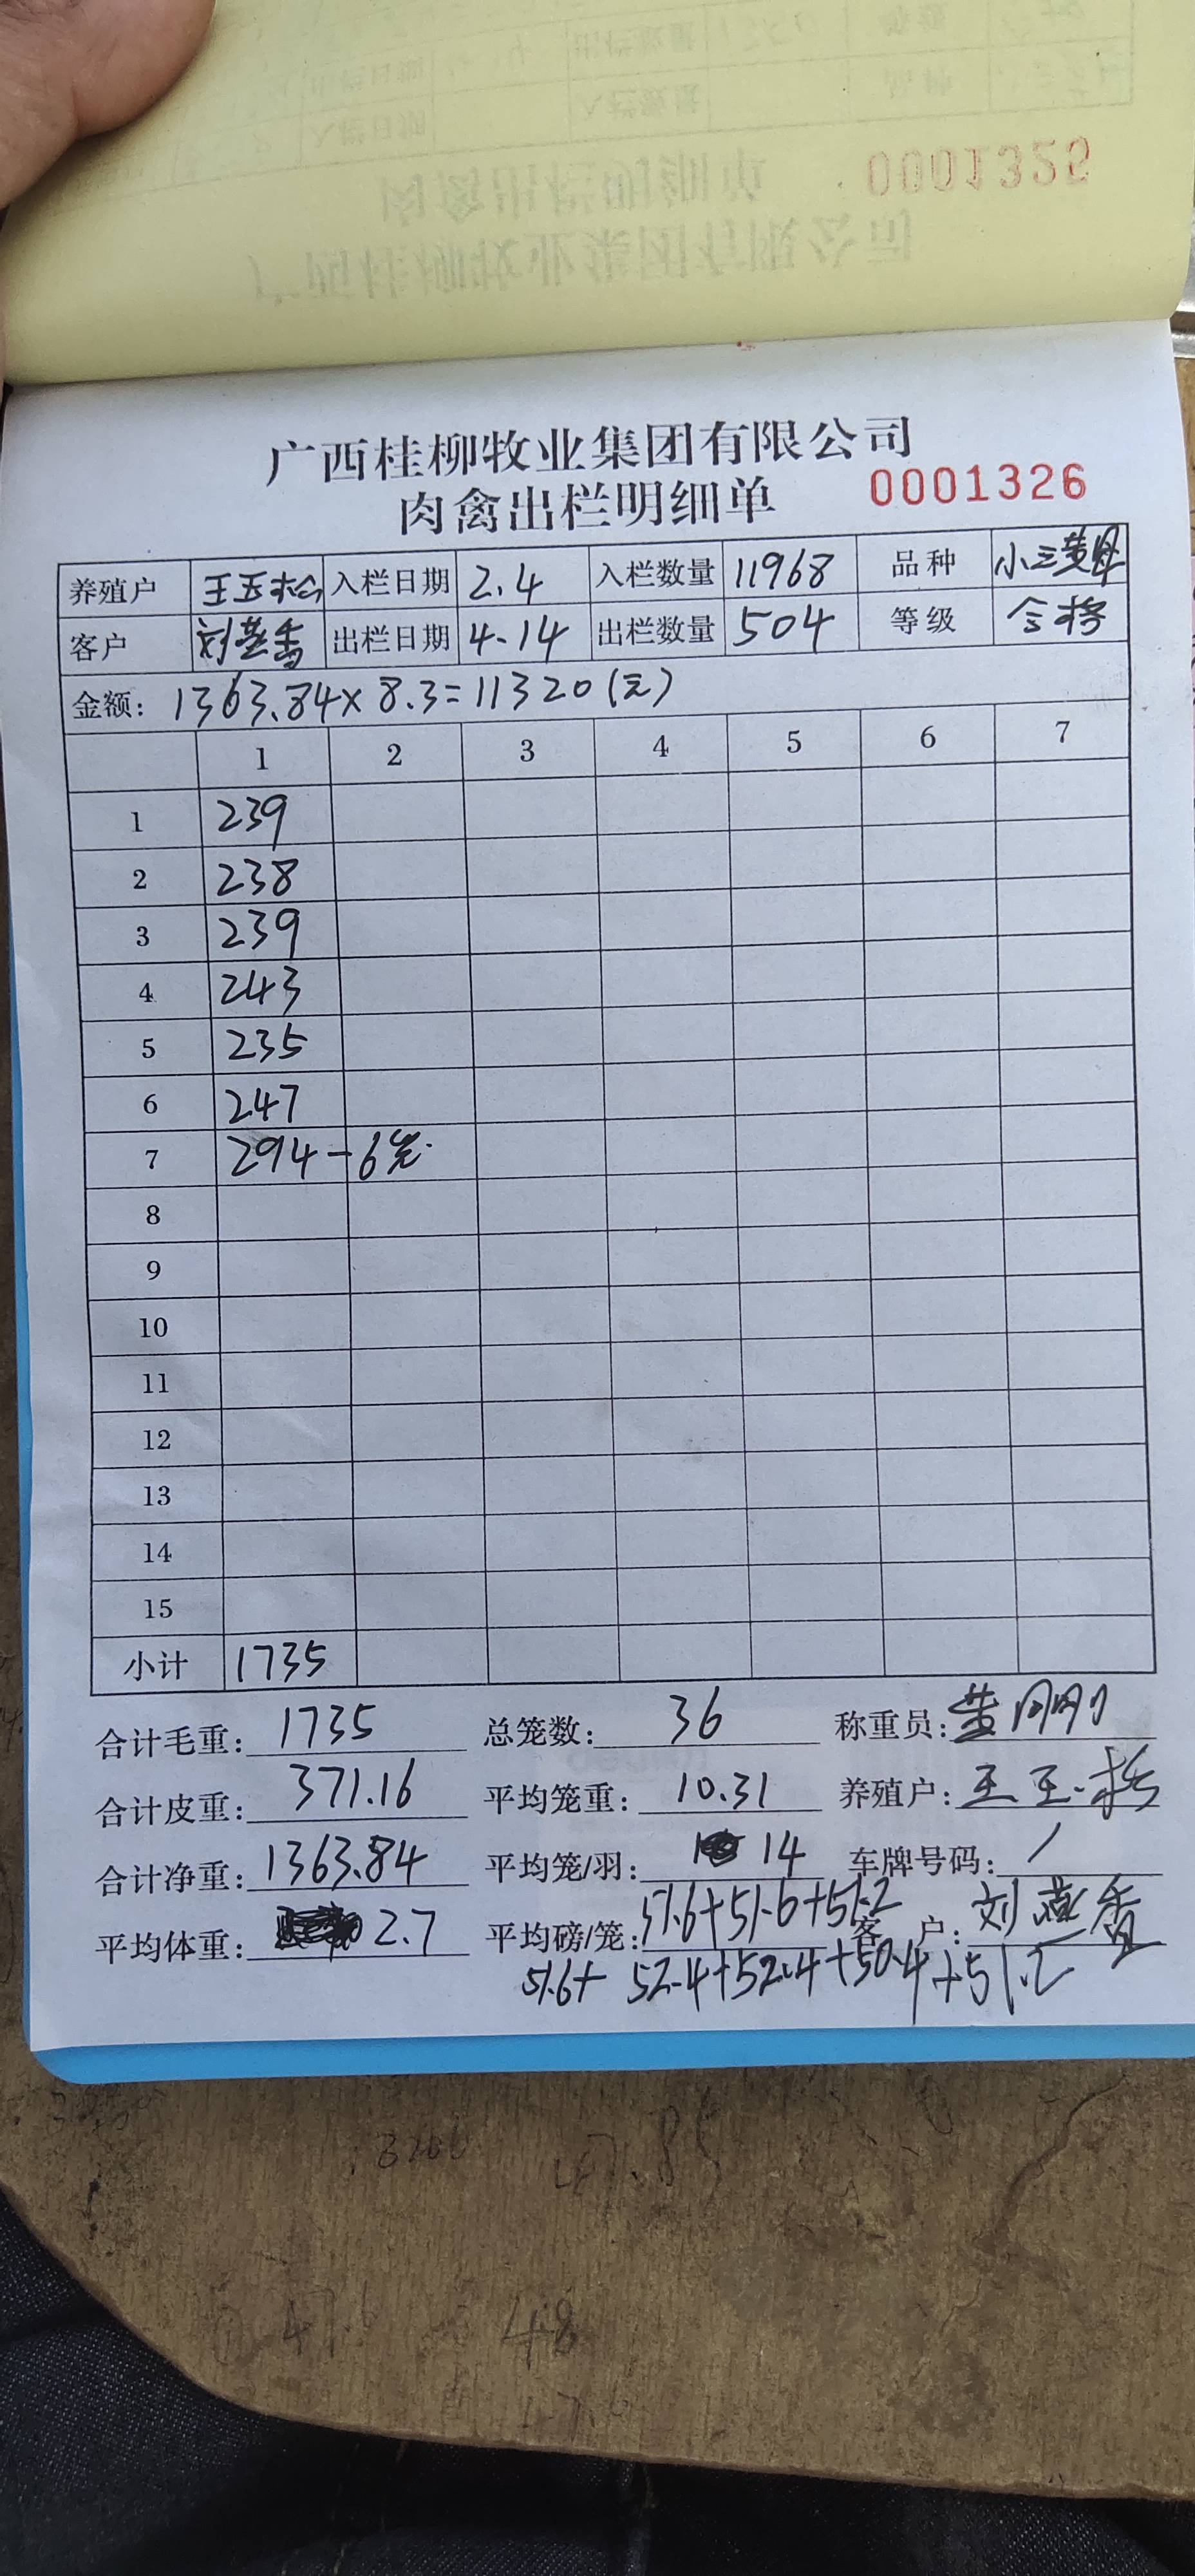 0001325
广西桂柳牧业集团有限公司
肉禽出栏明细单 0001326
养殖户 王玉松 入栏日期 2.4 入栏数量 11968 品种 小三黄母
客户 刘燕香 出栏日期 4.14 出栏数量 504 等级 合格
金额: 1363.84×8.3=11320(元)
1 2 3 4 5 6 7
1 239
2 238
3 239
4 243
5 235
6 247
7 294-6笼.
8
9
10
11
12
13
14
15
小计 1735
合计毛重: 1735 总笼数: 36 称重员: 黄刚刚
合计皮重: 371.16 平均笼重: 10.31 养殖户: 王玉松
合计净重: 1363.84 平均笼/羽: 14 车牌号码: /
平均体重: 2.7 平均磅/笼: 51.6+51.6+51.2 客 户: 刘燕香
51.6+ 52.4+52.4+50.4+51.2
3266
47.85
48